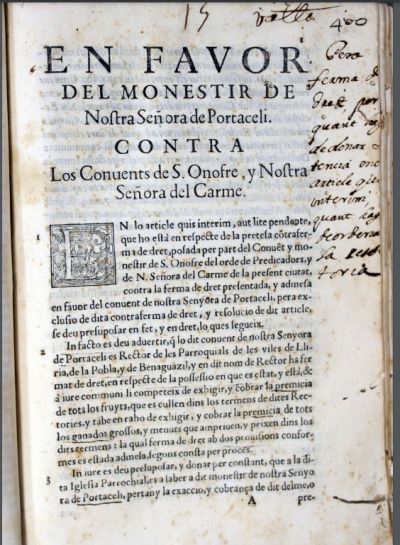 15
400
EN FAVOR
DEL MONESTIR DE
Nostra Señora de Portaceli.
CONTRA
Los Conuents de S. Onofre, y Nostra
Señora del Carme.
1 EN lo article quis interim, aut lite pendente,
que ho està en respecte de la pretesa cõtrafer-
ma de dret, posada per part del Conuẽt y mo-
nestir de S. Onofre del orde de Predicadors, y
de N. Señora del Carme de la present ciutat,
contra la ferma de dret presentada, y admesa
en fauor del conuent de nostra Senyora de Portaceli, pera ex-
clusio de dita contraferma de dret, y resolucio de dit article,
se deu presuposar en fet, y en dret, lo ques segueix.
2 In facto es deu aduertir, q̃ lo dit conuent de nostra Senyora
de Portaceli es Rector de les Parroquials de les viles de Lli-
ria, de la Pobla, y de Benaguazil, y en dit nom de Rector ha fer
mat de dret, en respecte de la possessio en que es estat, y està, &
à iure communi li competeix de exhigir, y cobrar la premicia
de tots los fruyts, que es cullen dins los termens de dites Rec-
tories, y tãbe en raho de exhigir, y cobrar la premicia de tots
los ganados grossos, y menuts que ampriuen, y peixen dins los
dits termens: la qual ferma de dret ab dos prouisions confor-
mes es estada admesa, segons consta per procés.
3 In iure es deu presuposar, y donar per constant, que a la di-
ta Iglesia Parrochial, es a saber a dit monestir de nostra Senyo
ra de Portaceli, pertany la exaccio, y cobrança de dit delme, o
A pre-
Pera
ferma de
dret per
quant
de donar
article quis
interim,
quant